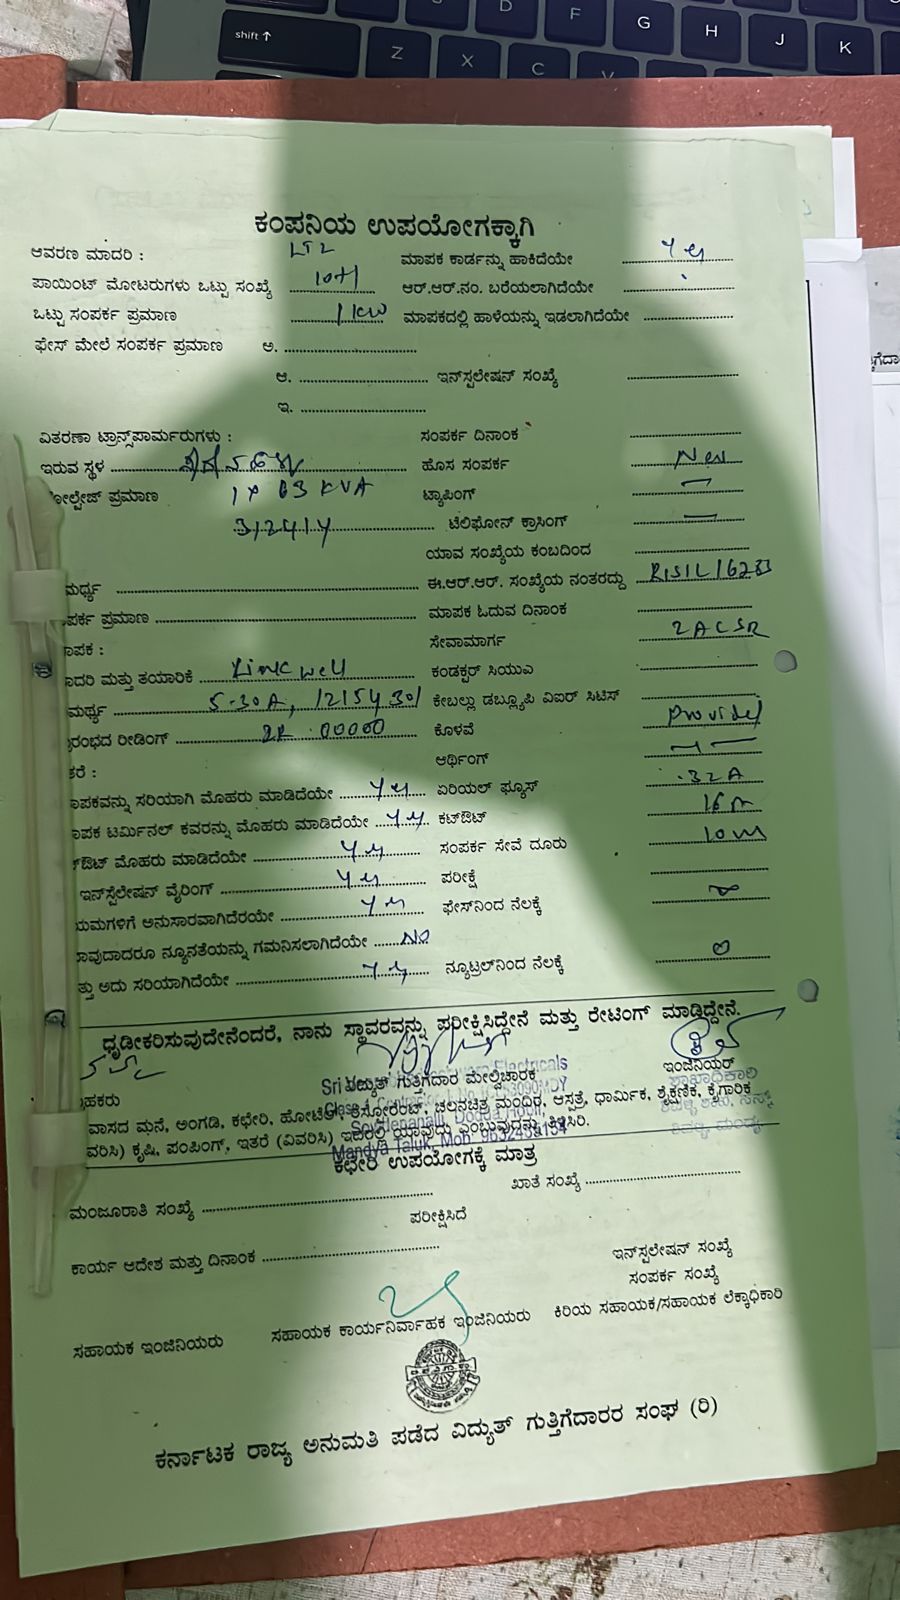 shift ↑
S D F G H J K
Z X C V
ಕಂಪನಿಯ ಉಪಯೋಗಕ್ಕಾಗಿ
ಆವರಣ ಮಾದರಿ : LT2 ಮಾಪಕ ಕಾರ್ಡನ್ನು ಹಾಕಿದೆಯೇ Yes
ಪಾಯಿಂಟ್ ಮೋಟರುಗಳು ಒಟ್ಟು ಸಂಖ್ಯೆ 10+1 ಆರ್.ಆರ್.ನಂ. ಬರೆಯಲಾಗಿದೆಯೇ
ಒಟ್ಟು ಸಂಪರ್ಕ ಪ್ರಮಾಣ 1 KW ಮಾಪಕದಲ್ಲಿ ಹಾಳೆಯನ್ನು ಇಡಲಾಗಿದೆಯೇ
ಫೇಸ್ ಮೇಲೆ ಸಂಪರ್ಕ ಪ್ರಮಾಣ ಅ.
ಆ. ಇನ್‌ಸ್ಟಲೇಷನ್ ಸಂಖ್ಯೆ
ಇ.
ವಿತರಣಾ ಟ್ರಾನ್ಸ್‌ಫಾರ್ಮರುಗಳು : ಸಂಪರ್ಕ ದಿನಾಂಕ
ಇರುವ ಸ್ಥಳ ಹೊಸ ಸಂಪರ್ಕ New
ೋಲ್ಟೇಜ್ ಪ್ರಮಾಣ 1 x 63 KVA ಟ್ಯಾಪಿಂಗ್ —
312414 ಟೆಲಿಫೋನ್ ಕ್ರಾಸಿಂಗ್ —
ಯಾವ ಸಂಖ್ಯೆಯ ಕಂಬದಿಂದ
ಮರ್ಥ್ಯ ಈ.ಆರ್.ಆರ್. ಸಂಖ್ಯೆಯ ನಂತರದ್ದು
ಪರ್ಕ ಪ್ರಮಾಣ ಮಾಪಕ ಓದುವ ದಿನಾಂಕ
ಾಪಕ : ಸೇವಾಮಾರ್ಗ 2 ACSR
ಾದರಿ ಮತ್ತು ತಯಾರಿಕೆ Linkwell ಕಂಡಕ್ಟರ್ ಸಿಯುಎ
ಮರ್ಥ್ಯ 5-30A, 12154301 ಕೇಬಲ್ಲು ಡಬ್ಲ್ಯೂಪಿ ವಿಐಆರ್ ಸಿಟಿಸ್
ರಂಭದ ರೀಡಿಂಗ್ 00000 ಕೊಳವೆ Provided
ತರೆ : ಆರ್ಥಿಂಗ್
ಾಪಕವನ್ನು ಸರಿಯಾಗಿ ಮೊಹರು ಮಾಡಿದೆಯೇ Yes ಏರಿಯಲ್ ಫ್ಯೂಸ್ 32A
ಾಪಕ ಟರ್ಮಿನಲ್ ಕವರನ್ನು ಮೊಹರು ಮಾಡಿದೆಯೇ Yes ಕಟ್‌ಔಟ್ 16A
್‌ಔಟ್ ಮೊಹರು ಮಾಡಿದೆಯೇ Yes ಸಂಪರ್ಕ ಸೇವೆ ದೂರು 10m
ಇನ್‌ಸ್ಟಲೇಷನ್ ವೈರಿಂಗ್ Yes ಪರೀಕ್ಷೆ
ಯಮಗಳಿಗೆ ಅನುಸಾರವಾಗಿದೆರಯೇ Yes ಫೇಸ್‌ನಿಂದ ನೆಲಕ್ಕೆ ∞
ಾವುದಾದರೂ ನ್ಯೂನತೆಯನ್ನು ಗಮನಿಸಲಾಗಿದೆಯೇ No
ತ್ತು ಅದು ಸರಿಯಾಗಿದೆಯೇ Yes ನ್ಯೂಟ್ರಲ್‌ನಿಂದ ನೆಲಕ್ಕೆ 0
ಧೃಡೀಕರಿಸುವುದೇನೆಂದರೆ, ನಾನು ಸ್ಥಾವರವನ್ನು ಪರೀಕ್ಷಿಸಿದ್ದೇನೆ ಮತ್ತು ರೇಟಿಂಗ್ ಮಾಡಿದ್ದೇನೆ.
್ರಾಹಕರು ವಿದ್ಯುತ್ ಗುತ್ತಿಗೆದಾರ ಮೇಲ್ವಿಚಾರಕ ಇಂಜಿನಿಯರ್
Electricals
ವಾಸದ ಮನೆ, ಅಂಗಡಿ, ಕಛೇರಿ, ಹೋಟೆಲ್, ರೆಸ್ಟೋರೆಂಟ್, ಚಲನಚಿತ್ರ ಮಂದಿರ, ಆಸ್ಪತ್ರೆ, ಧಾರ್ಮಿಕ, ಶೈಕ್ಷಣಿಕ, ಕೈಗಾರಿಕ
ವರಿಸಿ) ಕೃಷಿ, ಪಂಪಿಂಗ್, ಇತರೆ (ವಿವರಿಸಿ) ಇದರಲ್ಲಿ ಯಾವುದು ಎಂಬುವುದನ್ನು ತಿಳಿಸಿರಿ.
Mandya Taluk, Mob:
ಕಛೇರಿ ಉಪಯೋಗಕ್ಕೆ ಮಾತ್ರ
ಮಂಜೂರಾತಿ ಸಂಖ್ಯೆ ಖಾತೆ ಸಂಖ್ಯೆ
ಪರೀಕ್ಷಿಸಿದೆ
ಕಾರ್ಯ ಆದೇಶ ಮತ್ತು ದಿನಾಂಕ ಇನ್‌ಸ್ಟಲೇಷನ್ ಸಂಖ್ಯೆ
ಸಂಪರ್ಕ ಸಂಖ್ಯೆ
ಸಹಾಯಕ ಇಂಜಿನಿಯರು ಸಹಾಯಕ ಕಾರ್ಯನಿರ್ವಾಹಕ ಇಂಜಿನಿಯರು ಕಿರಿಯ ಸಹಾಯಕ/ಸಹಾಯಕ ಲೆಕ್ಕಾಧಿಕಾರಿ
ಕರ್ನಾಟಕ ರಾಜ್ಯ ಅನುಮತಿ ಪಡೆದ ವಿದ್ಯುತ್ ಗುತ್ತಿಗೆದಾರರ ಸಂಘ (ರಿ)